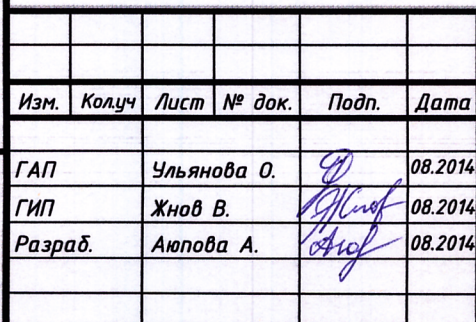 Изм. Кол.уч Лист № док. Подп. Дата
ГАП Ульянова О. 08.2014
ГИП Жнов В. 08.2014
Разраб. Аюпова А. 08.2014